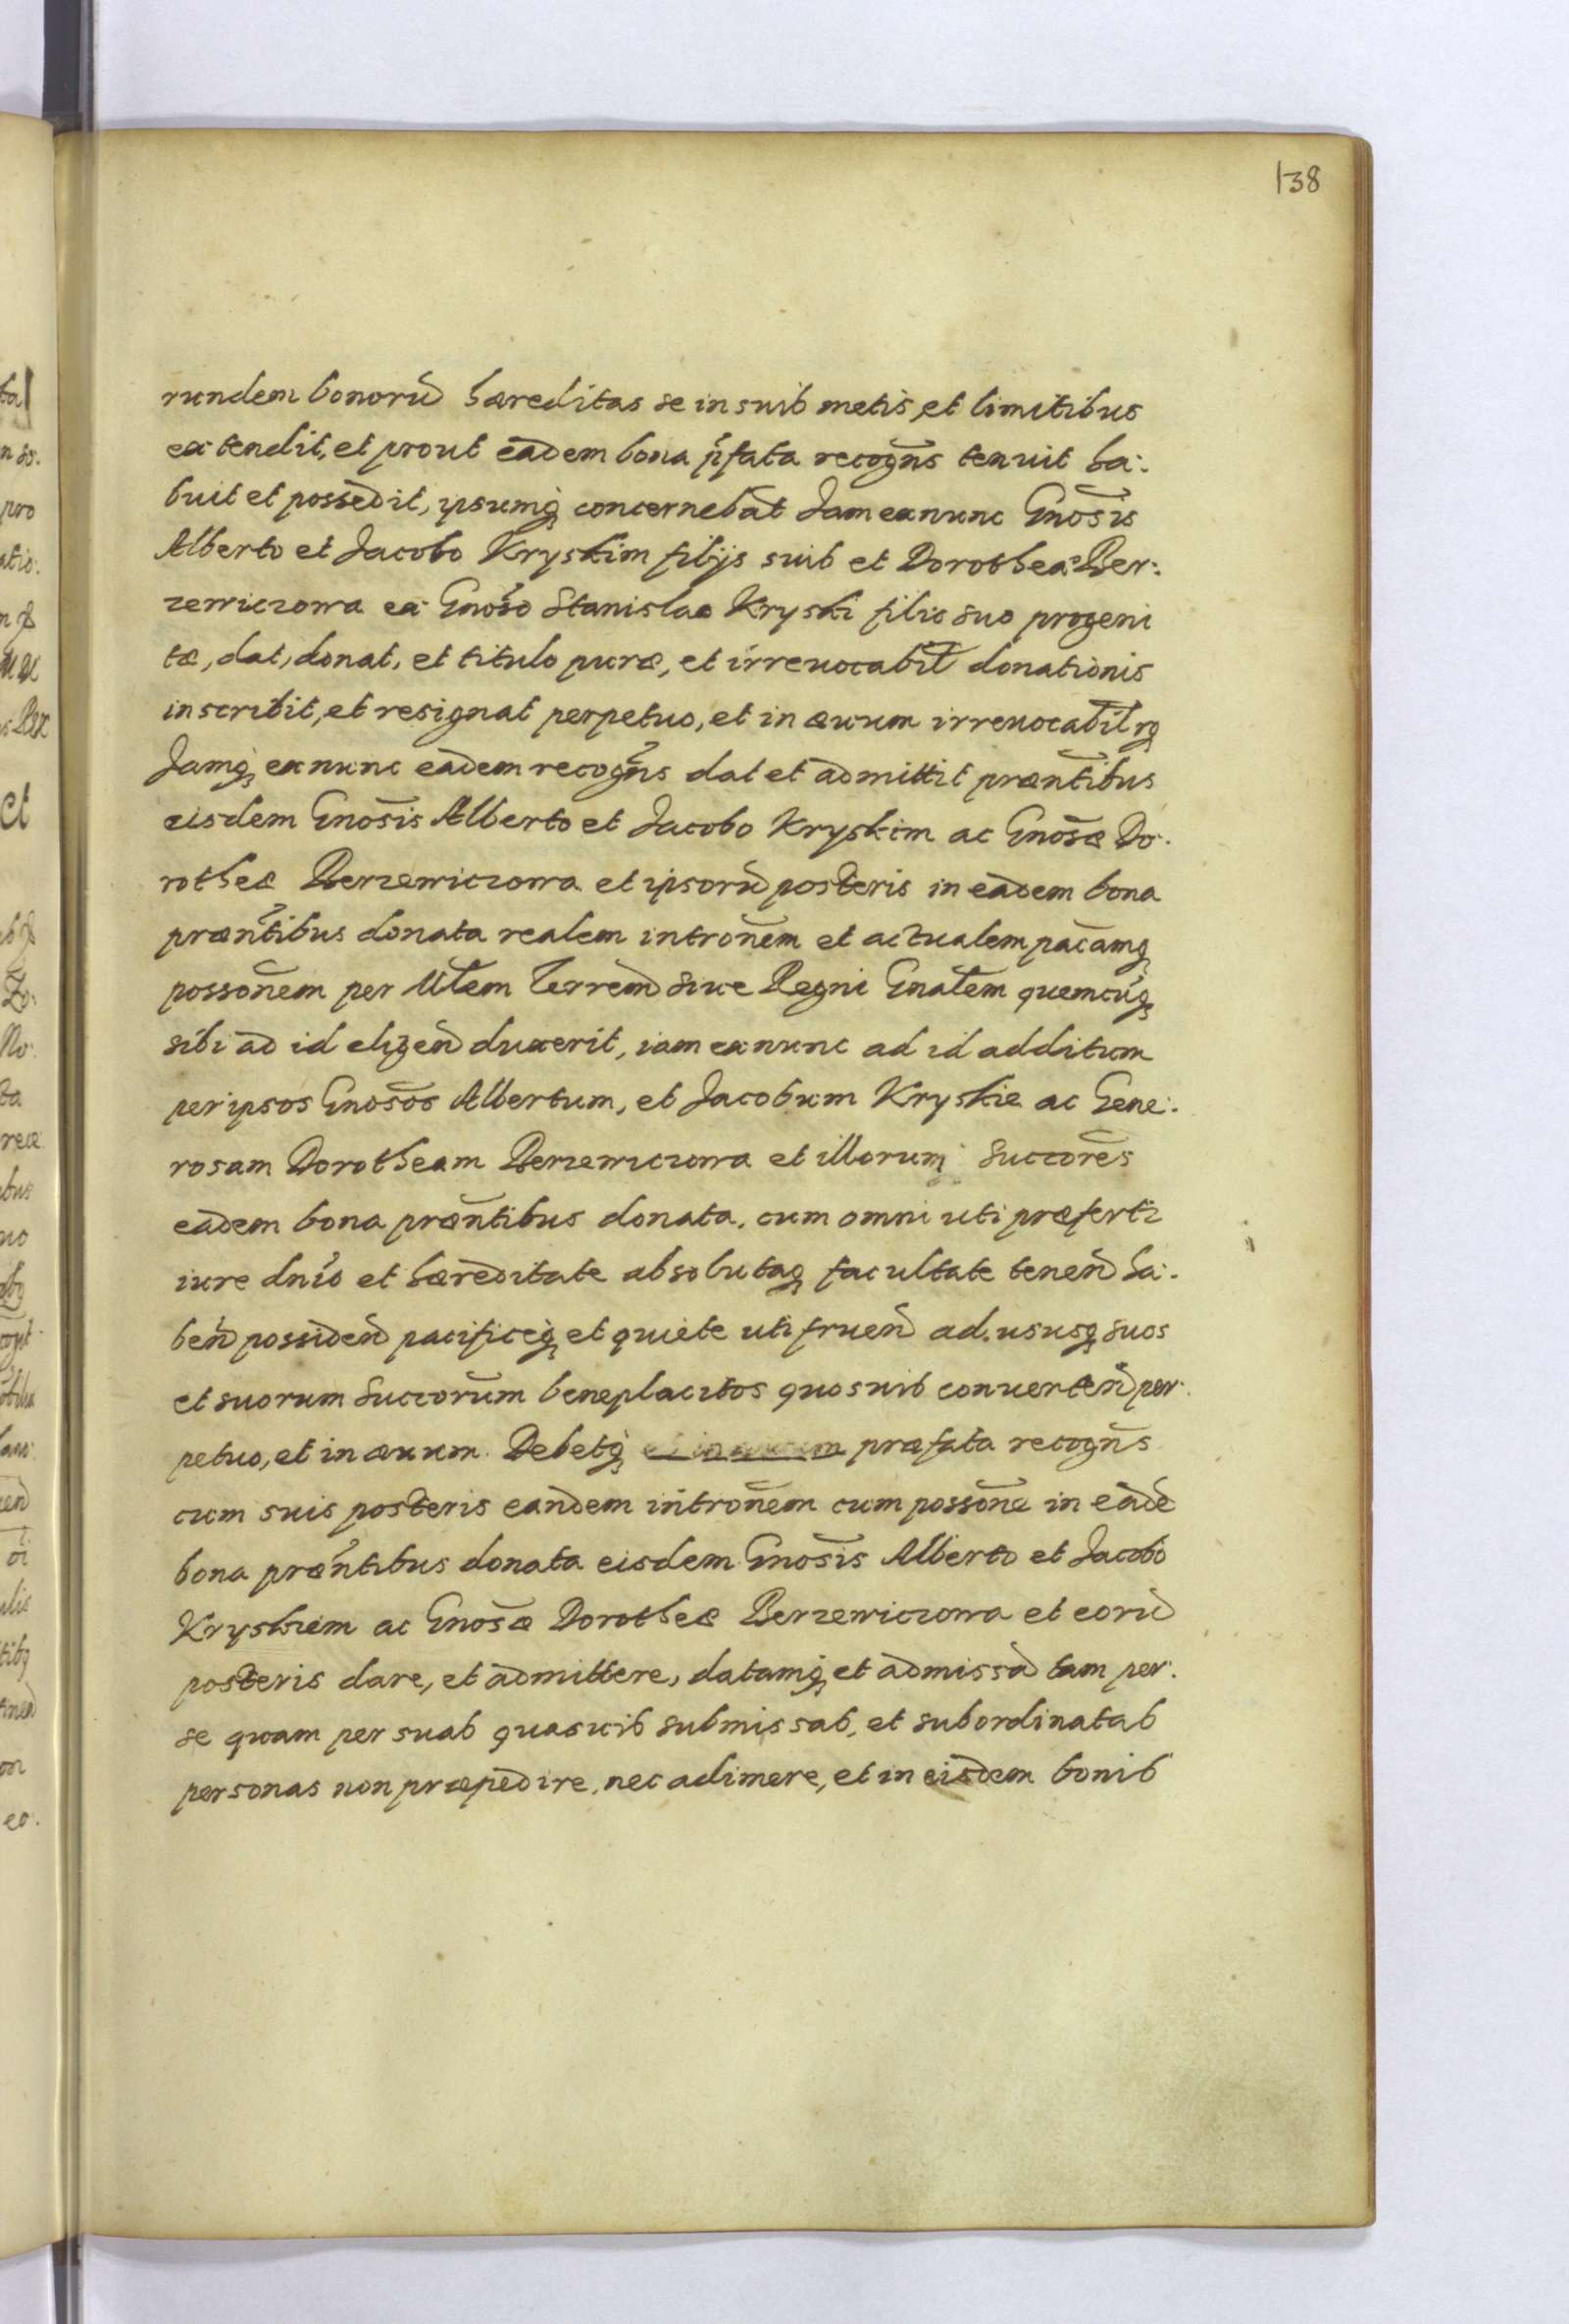 138
rundem bonorũ hæreditas se in suis metis, et limitibus
extendit, et prout eadem bona p̃fata recogñs tenuit ha:
buit et possedit, ipsumq; concernebat Jam exnunc Gnosis
Alberto et Jacobo Kryskim filijs suis et Dorotheæ Ber:
zewiczowa ex Gnoso Stanislao Kryski filio suo progeni
tæ, dat, donat, et titulo puræ, et irreuocabil donationis
inscribit, et resignat perpetuo, et in æuum irreuocabilrq;
Jamq; exnunc eadem recogñs dat et admittit præñtibus
eisdem Gnosis Alberto et Jacobo Kryskim ac Gnosæ Do:
rotheæ Berzewiczowa et ipsorũ posteris in eadem bona
præñtibus donata realem introñem et actualem pacamq;
possoñem per Mtem Terrend siue Regni Gnalem quemcuq;
sibi ad id eligend duxerit, iam exnunc ad id additum
per ipsos Gnosos Albertum, et Jacobum Kryskie ac Gene:
rosam Dorotheam Berzewiczowa et illorum Succores
eadem bona præñtibus donata. cum omni uti præfertr
iure dnio et hæreditate absolutaq; facultate tenend ha:
bend possidend pacificeq; et quiete uti fruend ad ususq; suos
et suorum Succorum beneplacitos quosuis conuertend per:
petuo, et in æuum. Debetq; et in æuum præfata recogñs
cum suis posteris eandem introñem cum possoñe in eadẽ
bona præñtibus donata eisdem Gnosis Alberto et Jacobo
Kryskiem ac Gnosæ Dorotheæ Berzewiczowa et eorũ
posteris dare, et admittere, datamq; et admissã tam per:
se quam per suas quasuis submissas, et subordinatas
personas non præpedire, nec adimere, et in eisdem bonis